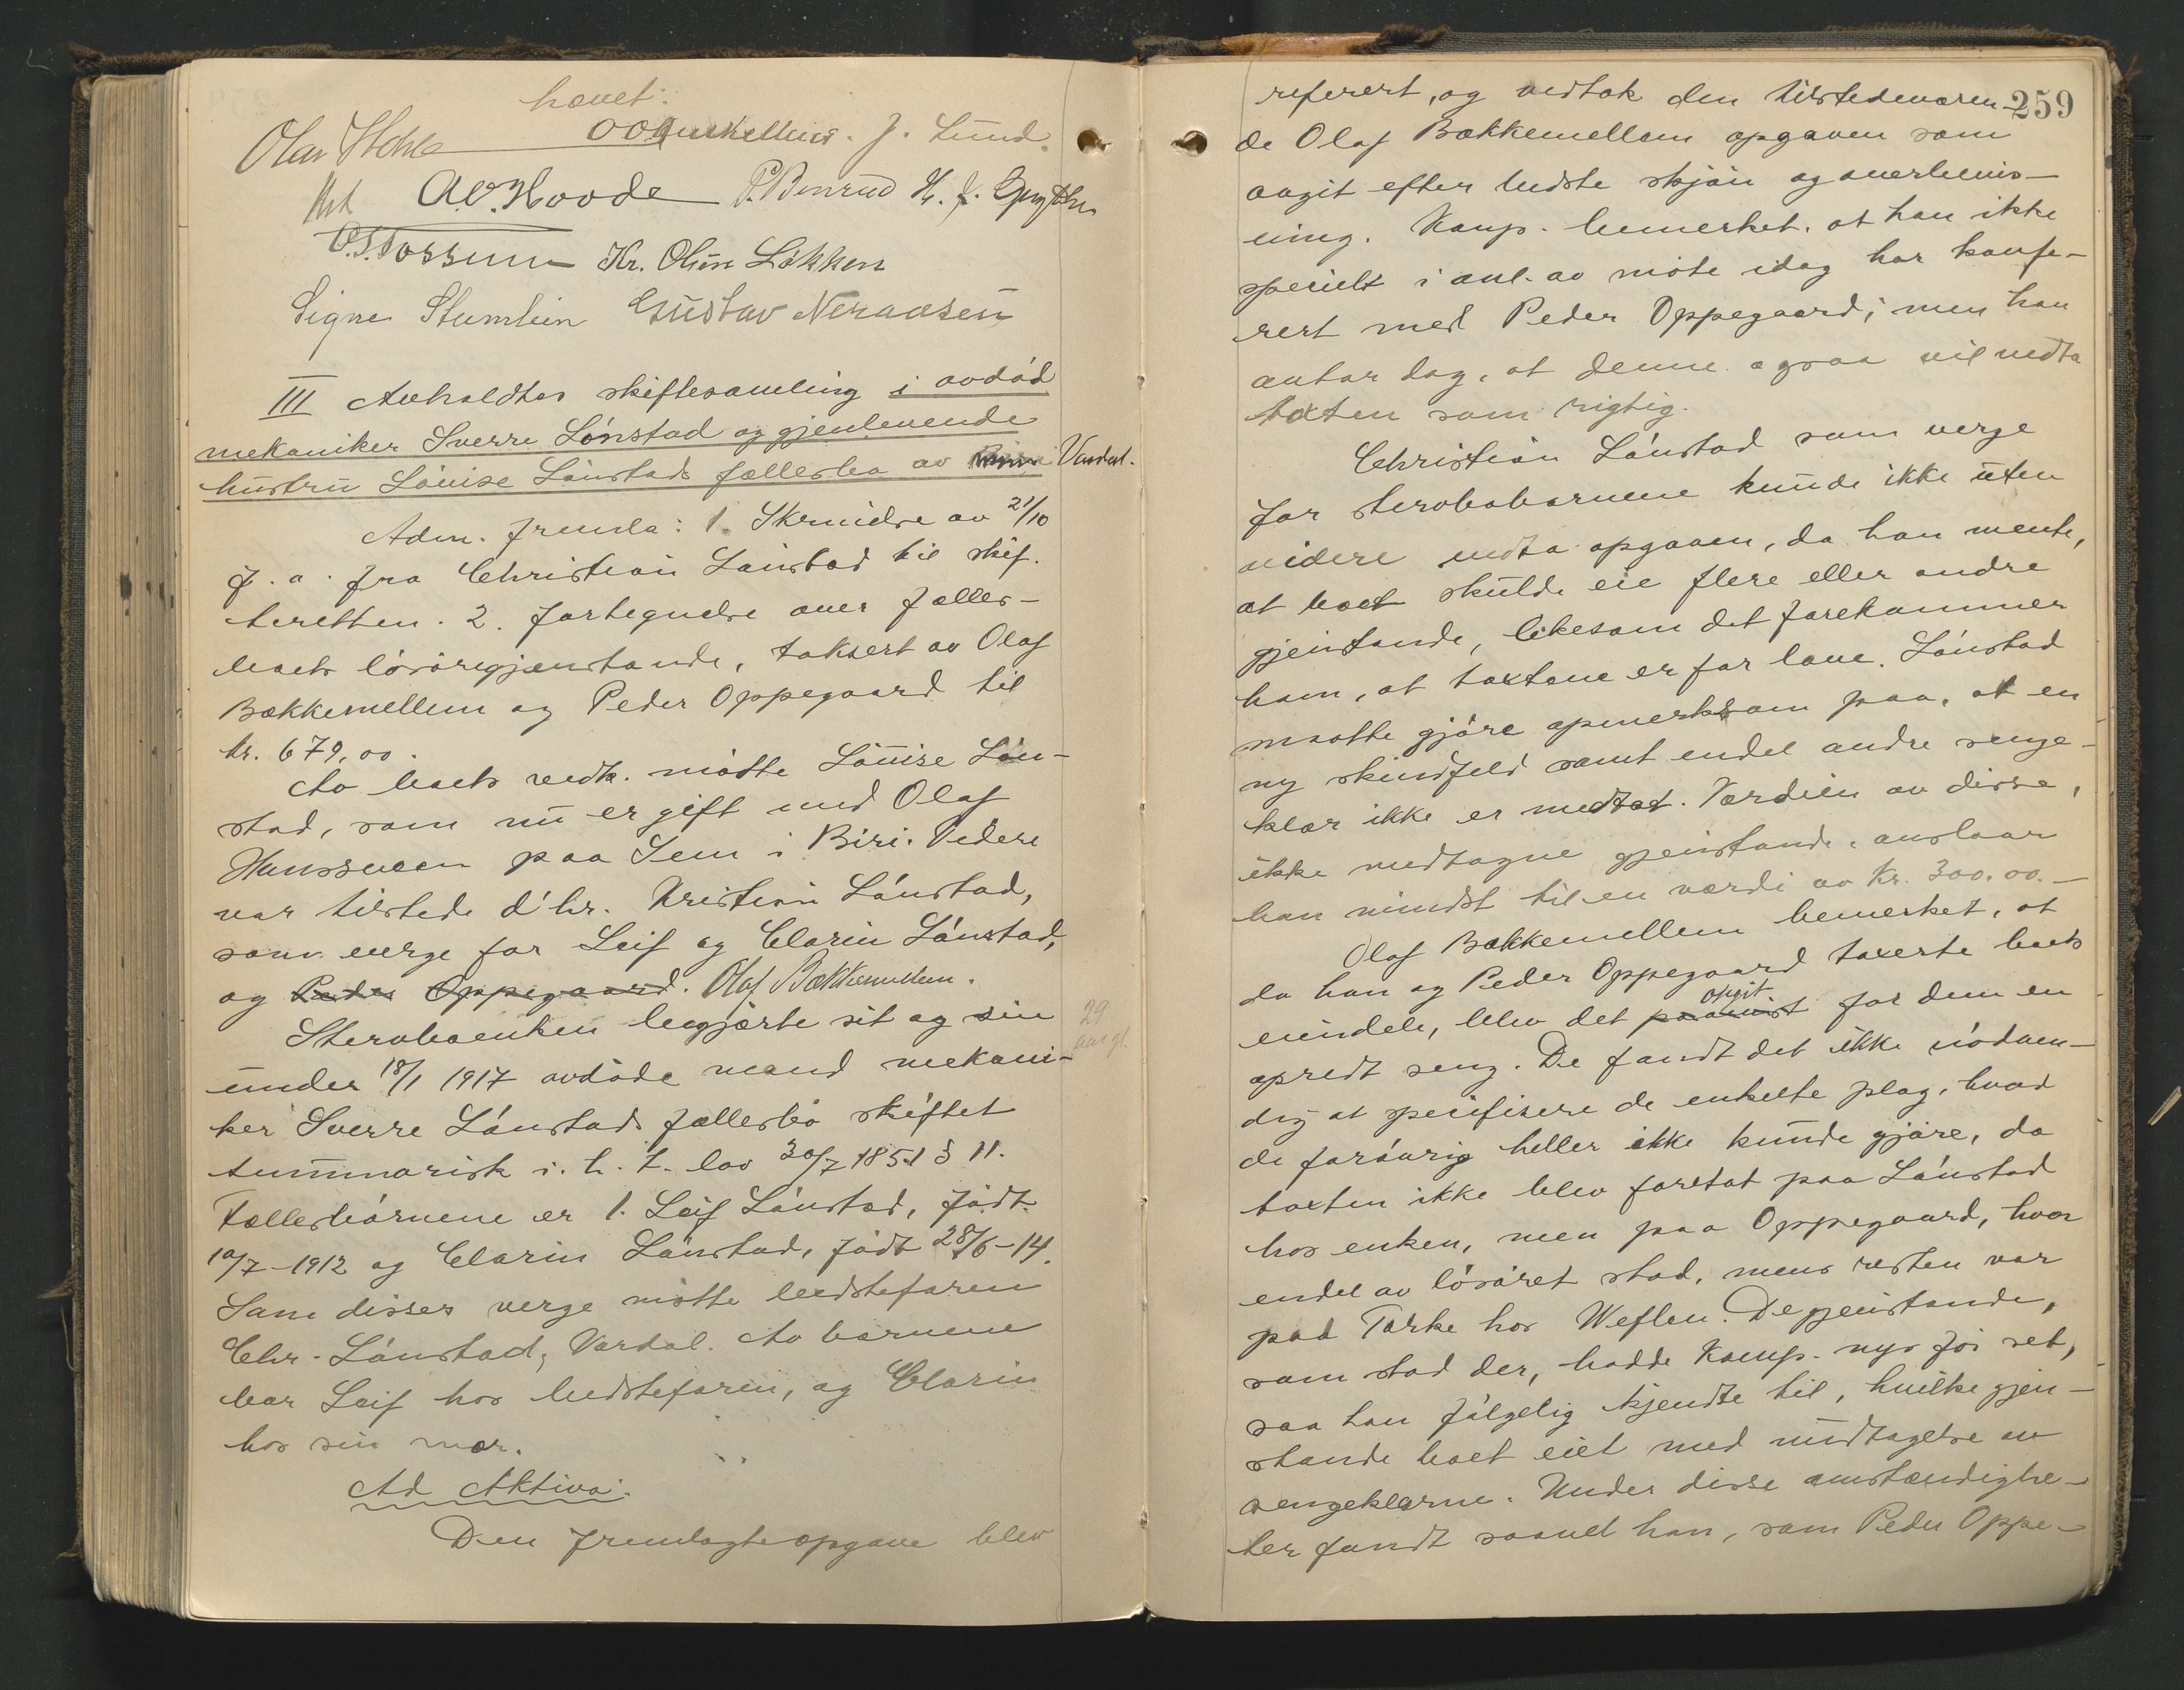 hævet:
J. Lund.
A.O. Hoode P. Benrud
O.S. Fossum Kr. Olsen Løkken
Signe Stumlien Gustav Neraasen
III Avholdtes skiftesamling i avdød
mekaniker Sverre Lónstad og gjenlevende
hustru Lóuise Lónstads fællesbo av Vardal.
Adm. fremla: 1. Skrivelse av 21/10
f. a. fra Christian Lónstad til skif-
teretten. 2. Fortegnelse over fælles-
boets lósóregjenstande, taksert av Olaf
Bækkemellem og Peder Oppegaard til
kr. 679,00.
Av boets vedk. mótte Lóuise Lón-
stad, som nu er gift med Olaf
Hanssveen paa Sem i Biri. Videre
var tilstede d'hr. Kristian Lónstad,
som verge for Leif og Clarin Lónstad,
og Peder Oppegaard. Olaf Bækkemellem.
Stervboenken begjærte sit og sin 29
under 18/1 1917 avdóde mand mekani-
ker Sverre Lónstads fællesbo skiftet
summarisk i. h. t. lov 30/7 1851 § 11.
Fællesbórnene er 1. Leif Lónstad, fódt
10/7-1912 og Clarin Lónstad, fódt 28/6-14.
Som disses verge mótte bedstefaren
Chr. Lónstad, Vardal. Av barnene
bor Leif hos bedstefaren, og Clarin
hos sin mor.
Ad Aktiva:
Den fremlagte opgave blev
259
referert, og vedtok den tilstedeværen-
de Olaf Bækkemellem opgaven som
avgit efter bedste skjón og overbevis-
ning. Komp. bemerket, at han ikke
specielt i anl. av móte idag har konfe-
rert med Peder Oppegaard; men han
antar dog, at denne ogsaa vil vedta
taxten som rigtig.
Christian Lónstad som verge
for stervbobarnene kunde ikke uten
videre vedta opgaven, da han mente,
at boet skulde eie flere eller andre
gjenstande, likesom det forekommer
ham, at taxtene er for lave. Lónstad
maatte gjóre opmerksom paa, at en
ny skindfeld samt endel andre senge-
klær ikke er medtat. Værdien av disse,
ikke medtagne gjenstande, anslaar
han mindst til en værdi av kr. 300.00.—
Olaf Bækkemellem bemerket, at
da han og Peder Oppegaard taxerte boets
eiendele, blev det opgit for dem en
opredt seng. De fandt det ikke nódven-
dig at specifisere de enkelte plag, hvad
de foróvrig heller ikke kunde gjóre, da
taxten ikke blev foretat paa Lónstad
hos enken, men paa Oppegaard, hvor
endel av lósóret stod, mens resten var
paa Torke hos Weflen. De gjenstande,
som stod der, hadde Komp. nys fór set,
saa han fólgelig kjendte til, hvilke gjen-
stande boet eiet med undtagelse av
sengeklærne. Under disse omstændighe-
ter fandt saavel han, som Peder Oppe-